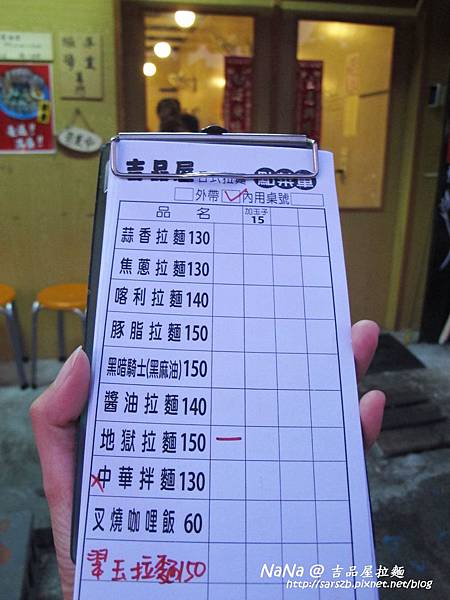 吉品屋 日式拉麵 點菜單
外帶 內用桌號
品名 加玉子 15
蒜香拉麵130
焦蔥拉麵130
喀利拉麵140
豚脂拉麵150
黑暗騎士(黑麻油)150
醬油拉麵140
地獄拉麵150 一
X中華拌麵130
叉燒咖哩飯 60
翠玉拉麵150
NaNa @ 吉品屋拉麵
http://sarszb.pixnet.net/blog